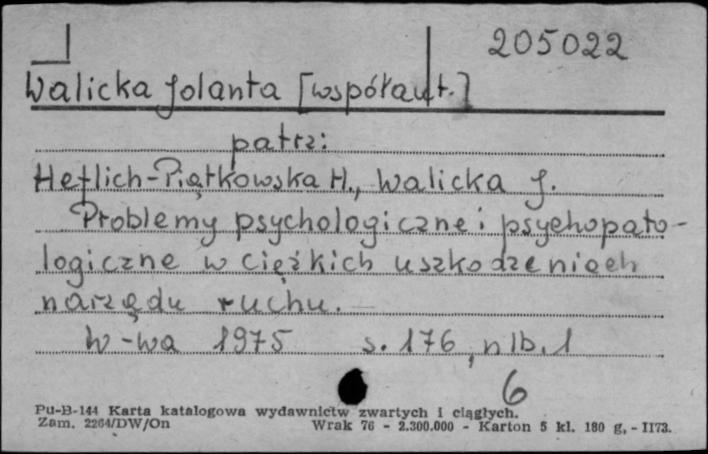 205022
Walicka Jolanta [współaut.]
patrz:
Heflich-Piątkowska H., Walicka J.
Problemy psychologiczne i psychopato-
logiczne w ciężkich uszkodzeniach
narządu ruchu.
W-wa 1975 s. 176, nlb. 1
6
Pu-B-144 Karta katalogowa wydawnictw zwartych i ciągłych.
Zam. 2264/DW/On Wrak 76 - 2.300.000 - Karton 5 kl. 180 g, - II73.